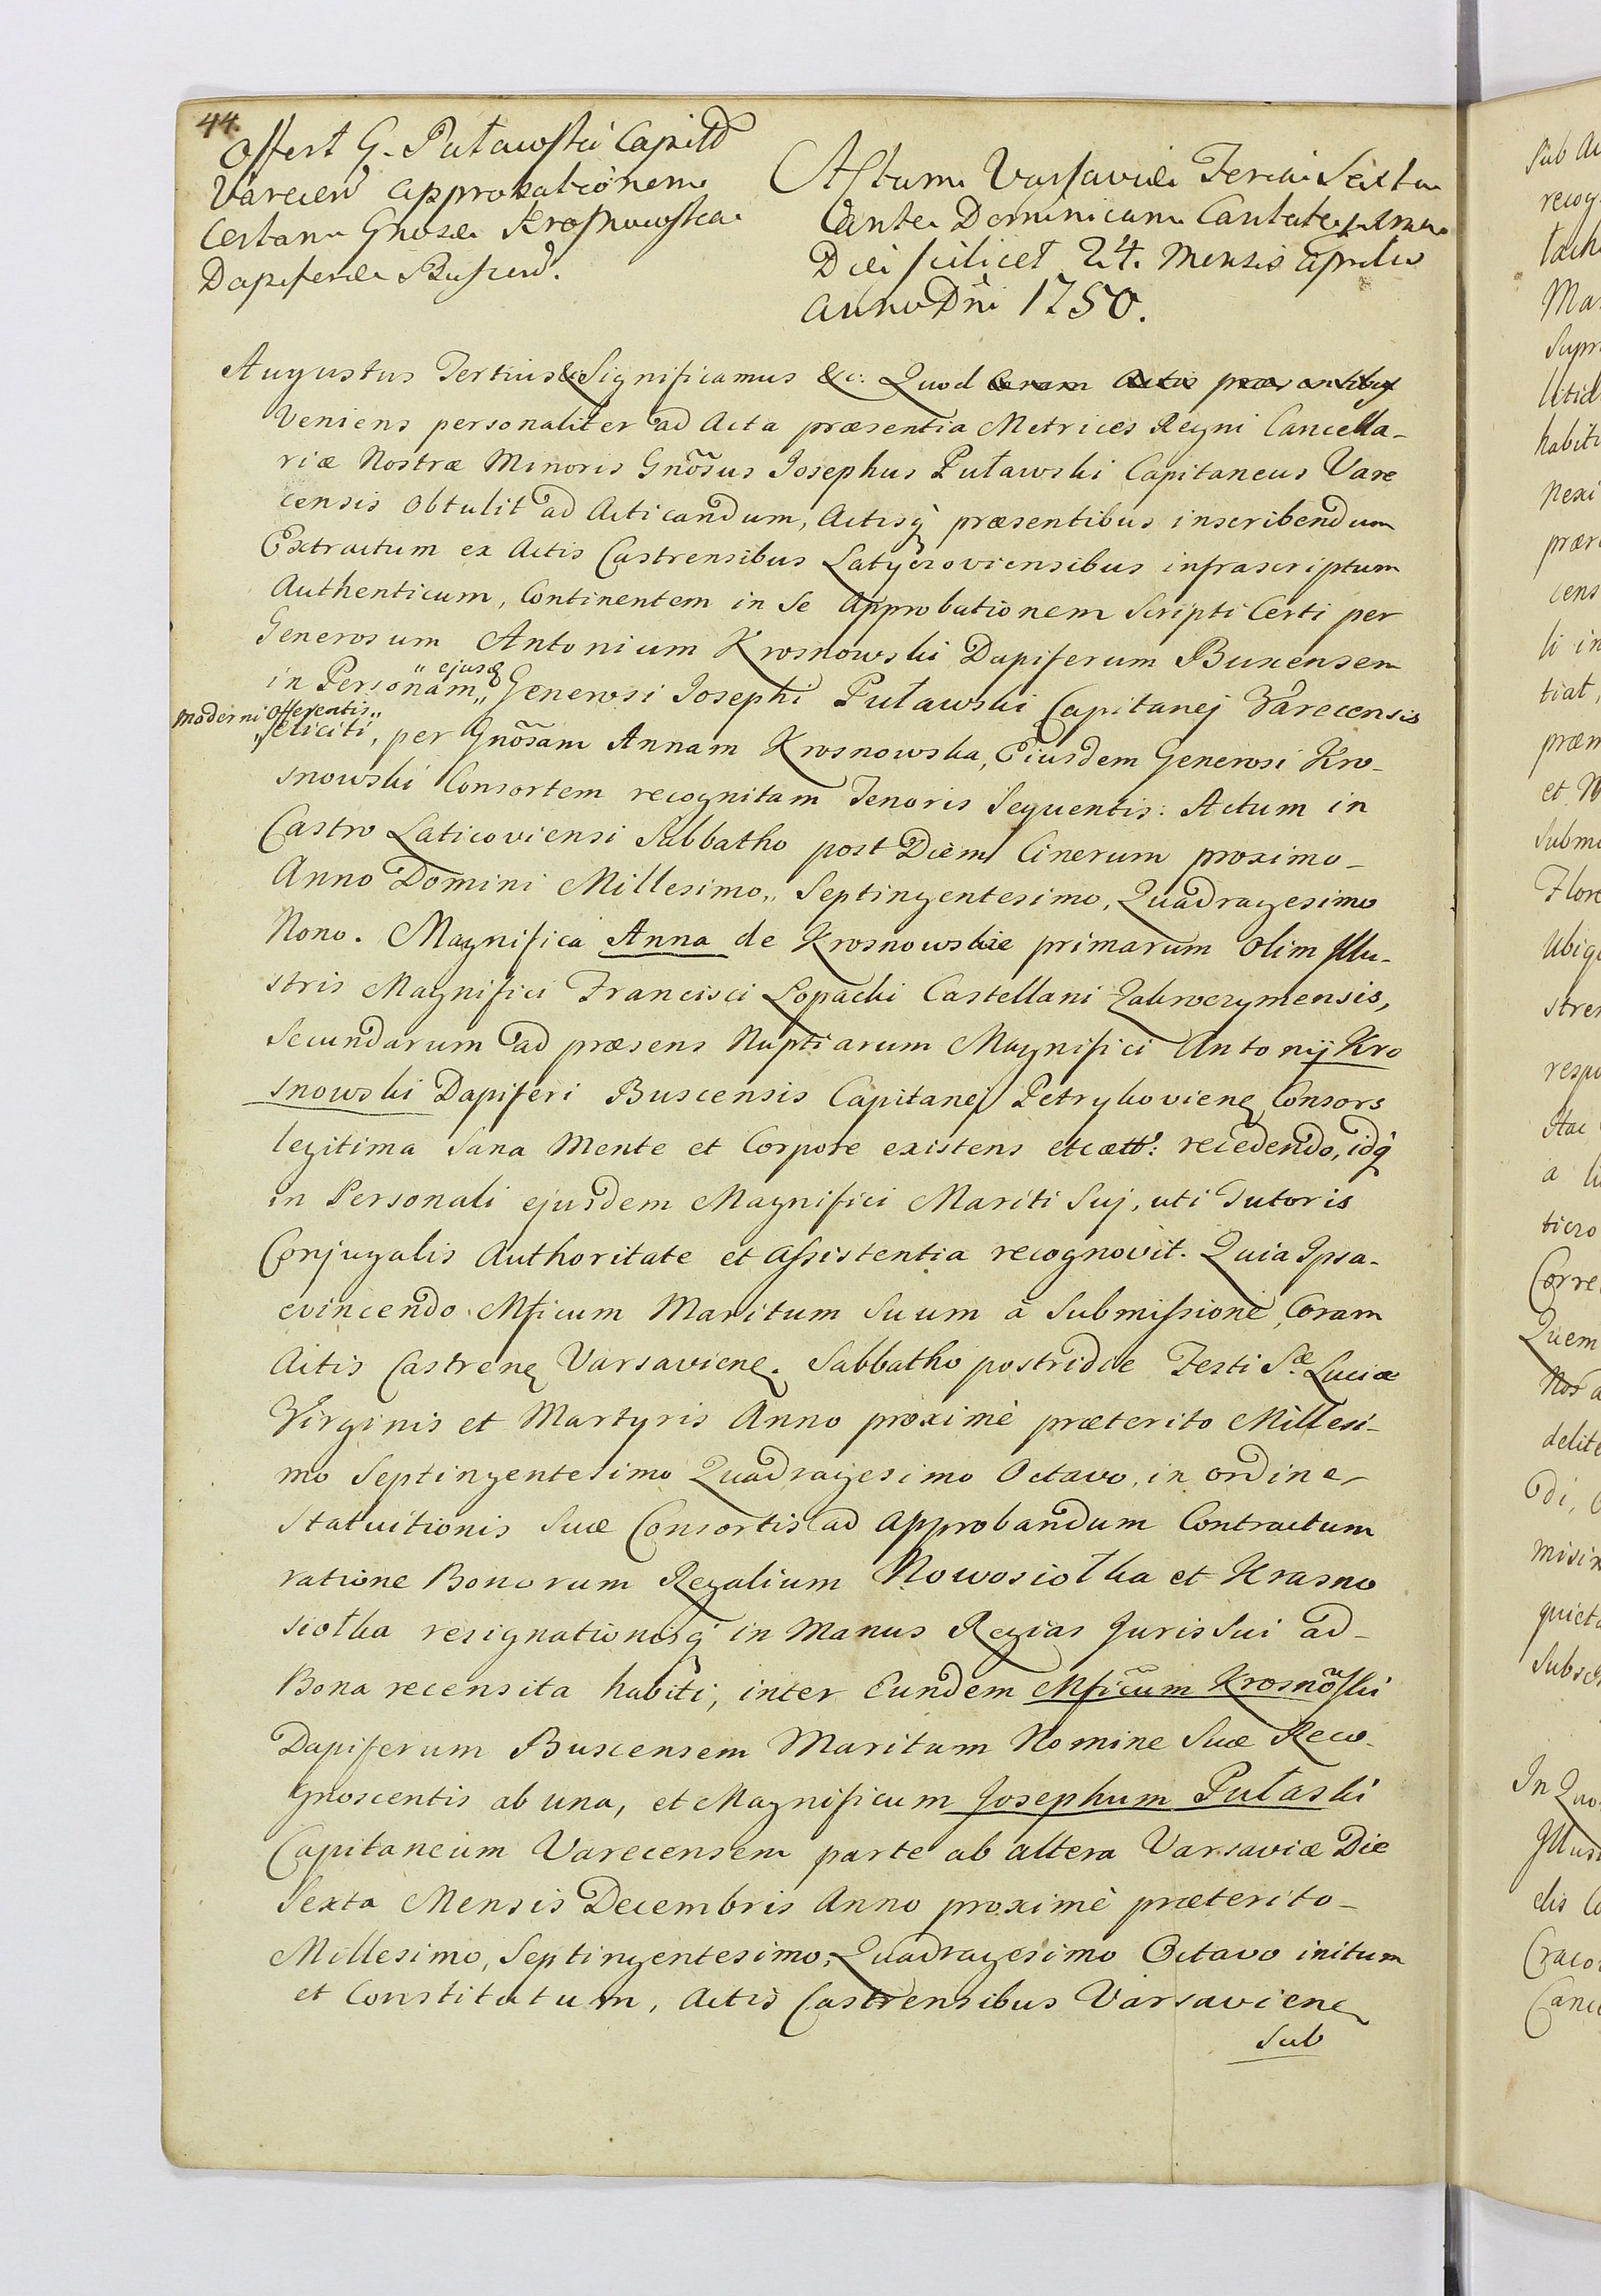 44.
Offert G. Puławski Capitā
Varecen̄ approbationem
certam Gnosæ Krosnowska
Dapiferæ Buscen̄.
Actum Varsaviæ Feria Sexta
ante Dominicam Cantate proxima
Die scilicet 24. Mensis Aprilis
Anno Dñi 1750.
Augustus Tertius &c: Significamus &c: Quod coram Actis præsentibus
Veniens personaliter ad Acta præsentia Metrices Regni Cancella-
riæ Nostræ Minoris Gnõsus Josephus Puławski Capitaneus Vare
censis obtulit ad Acticandum, Actisq̀ præsentibus inscribendum
Extractum ex Actis Castrensibus Latyczoviensibus infrascriptum
Authenticum, Continentem in Se Approbationem Scripti Certi per
Generosum Antonium Krosnowski Dapiferum Buscensem
in Personam „ Generosi Josephi Puławski Capitanej Varecensis
" ejusdē
moderni Offerentis„
„feliciti, per Gnõsam Annam Krosnowska, Ejusdem Generosi Kro-
snowski Consortem recognitam Tenoris Sequentis: Actum in
Castro Laticoviensi Sabbatho post Diem Cinerum proximo-
Anno Domini Millesimo„ Septingentesimo, Quadragesimo
Nono. Magnifica Anna de Krosnowskie primarum olim Illu-
stris Magnifici Francisci Łopacki Castellani Zakroczymensis,
Secundarum ad præsens Nuptiarum Magnifici Antonij Kro
snowski Dapiferi Buscensis Capitanej Petrykovienę Consors
legitima Sana Mente et Corpore existens etcætt: recedendo, idq̀
in Personali ejusdem Magnifici Mariti Suj, uti Tutoris
Conjugalis Authoritate et Assistentia recognovit. Quia Ipsa-
evincendo Mficum Maritum Suum à Submissione, Coram
Actis Castrenę Varsavienę. Sabbatho postridie Festi Sæ Luciæ
Virginis et Martyris Anno proximè præterito Millesi-
mo Septingentesimo Quadragesimo Octavo, in ordine
Statuitionis Suæ Consortis ad Approbandum Contractum
ratione Bonorum Regalium Nowosiołka et Krasno
siołka resignationisq̀ in Manus Regias Juris Sui ad-
Bona recensita habiti, inter Eundem Mficum Krosnõski
Dapiferum Buscensem Maritum Nomine Suæ Reco-
gnoscentis ab una, et Magnificum Josephum Pułaski
Capitaneum Varecensem parte ab altera Varsaviæ Die
Sexta Mensis Decembris Anno proximè præterito-
Millesimo, Septingentesimo, Quadragesimo Octavo initum
et Constitutum, Actis Castrensibus Varsavienę
Sub